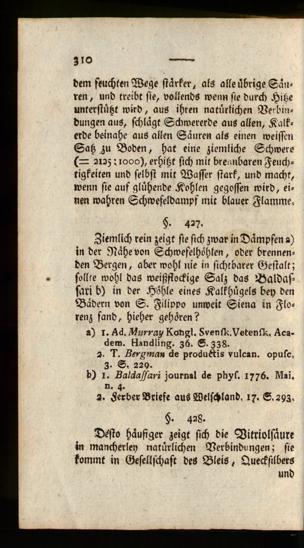 310
dem feuchten Wege stärker, als alle übrige Säu-
ren, und treibt sie, vollends wenn sie durch Hitze
unterstützt wird, aus ihren natürlichen Verbin-
dungen aus, schlägt Schwererde aus allen, Kalk-
erde beinahe aus allen Säuren als einen weissen
Satz zu Boden, hat eine ziemliche Schwere
(= 2125:1000), erhitzt sich mit brennbaren Feuch-
tigkeiten und selbst mit Wasser stark, und macht,
wenn sie auf glühende Kohlen gegossen wird, ei-
nen wahren Schwefeldampf mit blauer Flamme.
§. 427.
Ziemlich rein zeigt sie sich zwar in Dämpfen a)
in der Nähe von Schwefelhöhlen, oder brennen-
den Bergen, aber wohl nie in sichtbarer Gestalt;
sollte wohl das weißflockige Salz das Baldas-
sari b) in der Höhle eines Kalkhügels bey den
Bädern von S. Filippo unweit Siena in Flo-
renz fand, hieher gehören?
a) 1. Ad. Murray Kongl. Svensk. Vetensk. Aca-
dem. Handling. 36. S. 338.
2. T. Bergman de productis vulcan. opusc.
3. S. 229.
b) 1. Baldassari journal de phys. 1776. Mai.
n. 4.
2. Ferber Briefe aus Welschland. 17. S. 293.
§. 428.
Desto häufiger zeigt sich die Vitriolsäure
in mancherley natürlichen Verbindungen; sie
kommt in Gesellschaft des Bleis, Quecksilbers
und